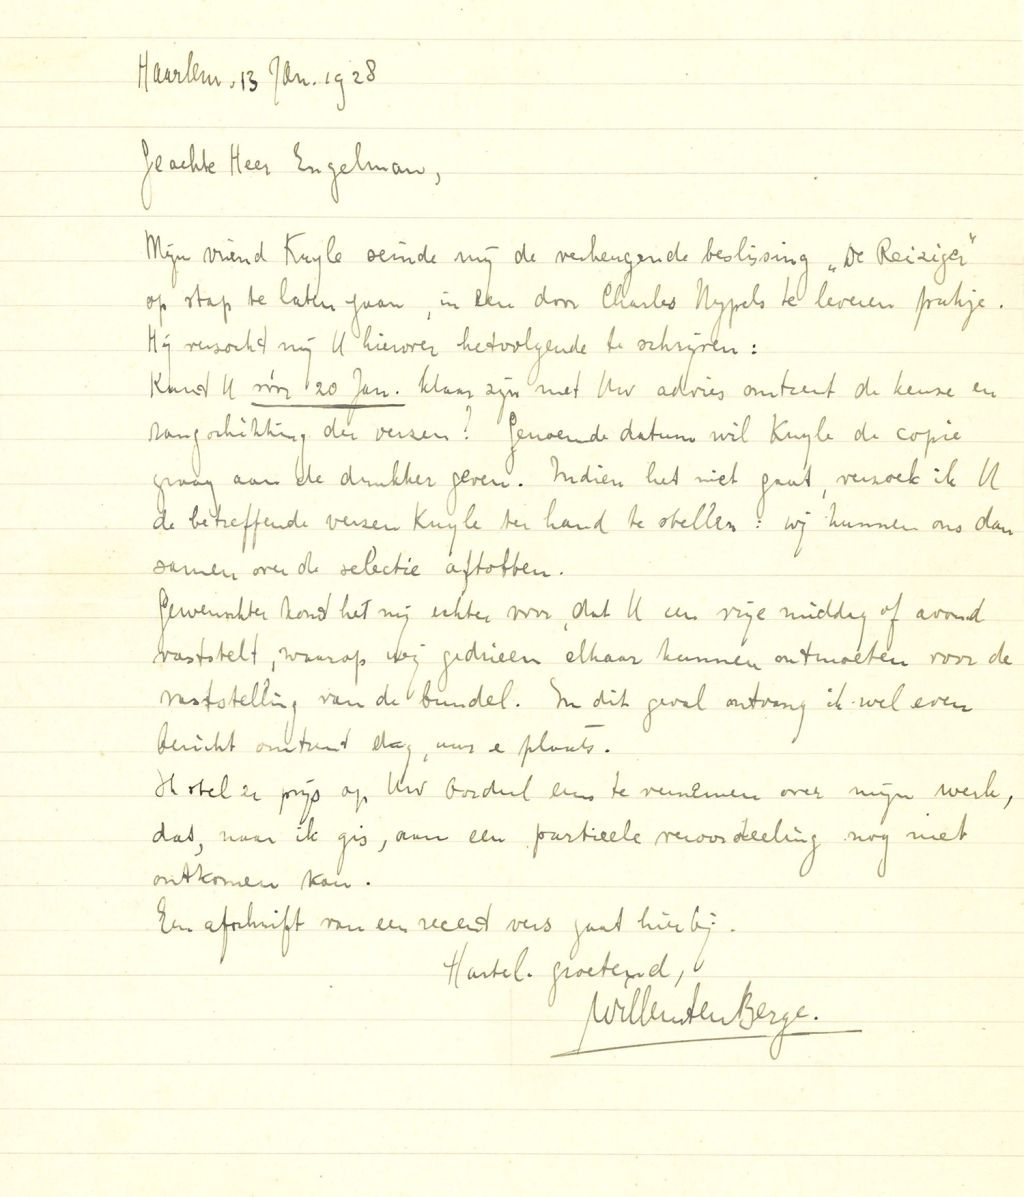 Haarlem, 13 Jan. 1928
Geachte Heer Engelman,
Mijn vriend Kuyle seinde mij de verheugende beslissing „De Reiziger”
op stap te laten gaan, in een door Charles Nypels te leveren pakje.
Hij verzocht mij U hierover hetvolgende te schrijven:
Kunt U vóór 20 Jan. klaar zijn met Uw advies omtrent de keuze en
rangschikking der verzen? Genoemde datum wil Kuyle de copie
graag aan de drukker geven. Indien het niet gaat, verzoek ik U
de betreffende verzen Kuyle ter hand te stellen: wij kunnen ons dan
samen over de selectie aftobben.
Gewenschter komt het mij echter voor, dat U een vrije middag of avond
vaststelt, waarop wij gedrieën elkaar kunnen ontmoeten voor de
vaststelling van de bundel. In dit geval ontvang ik wel even
bericht omtrent dag, uur e plaats.
Ik stel er prijs op Uw oordeel eens te vernemen over mijn werk,
dat, naar ik gis, aan een partieele veroordeeling nog niet
ontkomen kan.
Een afschrift van een recent vers gaat hierbij.
Hartel. groetend,
Willem ten Berge.